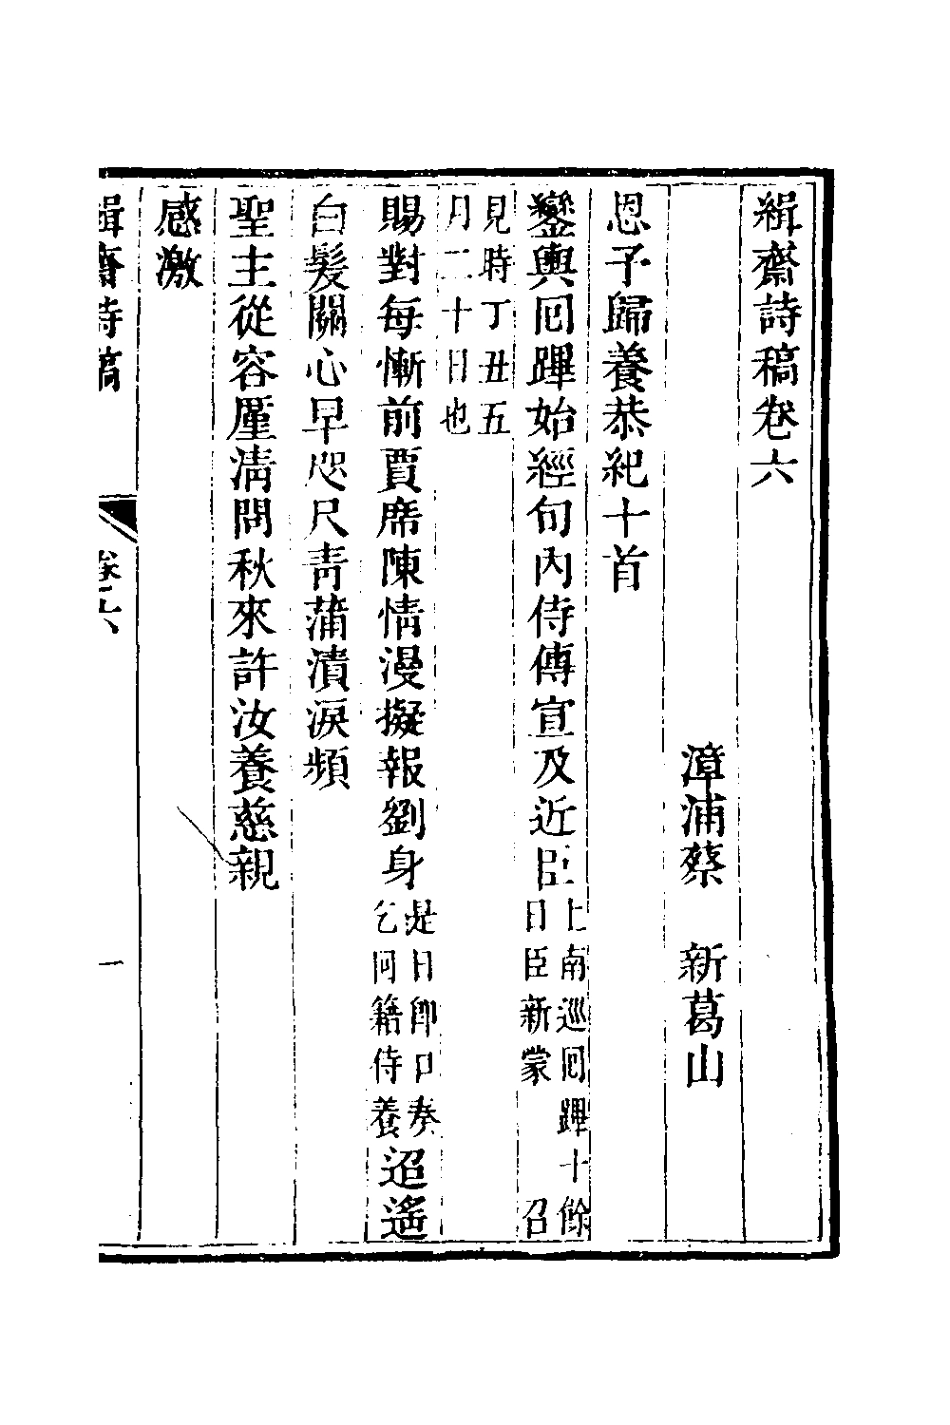 緝齋詩稿卷六
漳浦蔡 新葛山
恩予歸養恭紀十首
鑾輿回蹕始經旬內侍傳宣及近臣上南巡回蹕十餘日臣新蒙 召
見時丁丑五月二十日也
賜對每慚前賈席陳情漫擬報劉身是日卽口奏乞回籍侍養迢遙
白髮關心早咫尺靑蒲漬淚頻
聖主從容廑淸問秋來許汝養慈親
感激
緝齋詩稿
卷六
一